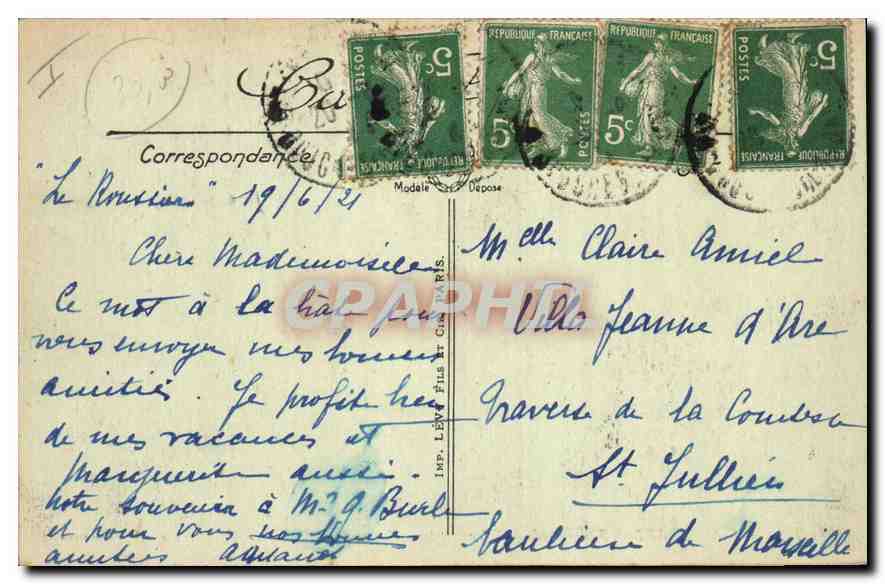 I
5c POSTES RÉPUBLIQUE FRANÇAISE
RÉPUBLIQUE FRANÇAISE 5c POSTES
RÉPUBLIQUE FRANÇAISE 5c
5c POSTES RÉPUBLIQUE FRANÇAISE
Correspondance
Modèle Déposé
"Le Roussier" 19/6/21
Chère Mademoiselle
Ce mot à la hâte pour
vous envoyer mes bonnes
amitiés. Je profite bien
de mes vacances et
Marguerite aussi.
Notre souvenir à Mr G. Burle
et pour vous nos bonnes
amitiés
IMP. LÉVY FILS ET CIE PARIS.
Melle Claire Amiel
Villa Jeanne d'Arc
Traverse de la Comtesse
St. Jullien
banlieue de Marseille
CPAPHIL